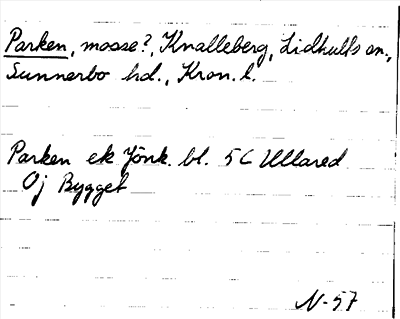 Parken, mosse?, Knalleberg, Lidhults sn.,
Sunnerbo hd., Kron. l.
Parken ek Jönk. bl. 5C Ullared
Oj Bygget
N-57